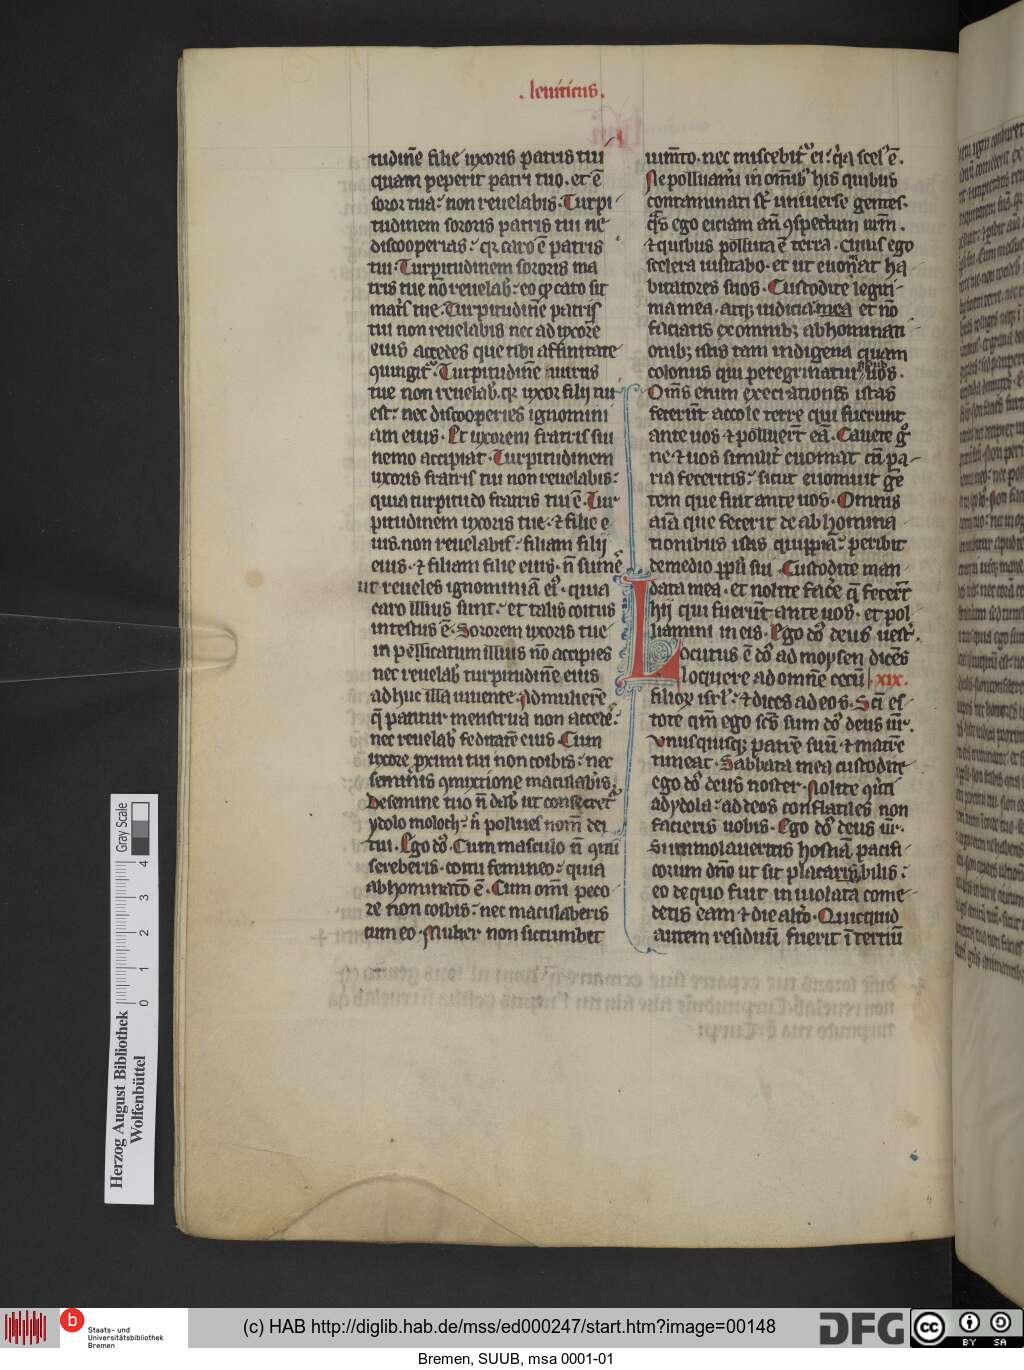 . leuiticus .
tudinē filie uxoris patris tui
quam peperit patri tuo . et ē
soror tua : non reuelabis . Turpi
tudinem sororis patris tui ne
discooperias : q̄r caro ē patris
tui : Turpitudinem sororis ma
tris tue nō reuelab̄ : eo qꝫ caro sit
mat̄s tue . Turpitudinē patris
tui non reuelabis nec ad uxorē
eius accedes que tibi affinitate
ꝯiungit᷑ . Turpitudinē nurus
tue non reuelab̄ . q̄r uxor filij tui
est : nec discooperies ignomini
am eius . Et uxorem fratris sui
nemo accipiat . Turpitudinem
uxoris fratris tui non reuelabis :
quia turpitudo fratris tui ē . Tur
pitudinem uxoris tue . ⁊ filie e
ius . non reuelabis : filiam filij
eius . ⁊ filiam filie eius . n̄ sumē
ut reueles ignominiā eiꝰ . quia
caro illius sunt : et talis coitus
incestus ē . Sororem uxoris tue
in pellicatum illius nō accipies
nec reuelab̄ turpitudinē eius
adhuc illa uiuente . Ad mulierē
q̄ patitur menstrua non accedē :
nec reuelab̄ feditatē eius . Cum
uxore proximi tui non coibis : nec
seminis ꝯmixtione maculabis .
De semine tuo n̄ dab̄ ut consecret᷑
ydolo moloch : n̄ pollues nom̄ dei
tui . Ego dn̄s . Cum masculo n̄ ꝯmi
sceberis . coitu femineo : quia
abhominatō ē . Cum om̄i peco
re non coibis : nec maculaberis
cum eo . Mulier non sucumbet
iumēto . nec miscebit᷑ ei : q̄a scelꝰ ē .
Ne polluamī in om̄ibꝰ his quibus
contaminati st̄ uniuerse gentes .
q̄s ego eiciam an̄ ꝯspectum ur̄m .
⁊ quibus polluta ē terra . cuius ego
scelera uisitabo . et ut euomat ha
bitatores suos . Custodite legiti
ma mea . atqꝫ iudicia mea et nō
faciatis ex omnibꝫ abhominati
onibꝫ istis tam indigena quam
colonus qui peregrinatur ap̄ uos .
Om̄s enim execrationes istas
fecerūt accole terre qui fuerunt
ante uos ⁊ polluer̄t eā . Cauete gͦ
ne ⁊ uos simili᷑t euomat cū pa
ria feceritis : sicut euomuit gē
tem que fuit ante uos . Omnis
aīa que fecerit de abhomina
tionibus istis quippiā : peribit
de medio ppl̄i sui . Custodite man
data mea . et nolite facē q̄ fecer̄t
hij qui fuerūt ante uos . et pol
luamini in eis . Ego dn̄s deus uest᷑ .
Locutus ē dn̄s ad moysen dicēs
loquere ad omnē cetū xix .
filioꝝ isrl̄ : ⁊ dices ad eos . Sc̄i es
tote qm̄ ego sc̄s sum dn̄s deus ur̄ .
Unusquisqꝫ patrē suū . ⁊ matrē
timeat . Sabbata mea custodite
ego dn̄s deus uoster . Nolite ꝯu̇ti
ad ydola : ad deos conflatiles non
facietis uobis . Ego dn̄s deus ur̄ .
Si immolaueritis hostiā pacifi
corum dn̄o ut sit placabilis :
eo de quo fuit in molata come
detis eam ⁊ die alt̄o . Quicquid
autem residuū fuerit ī tertiū
Herzog August Bibliothek
Wolfenbüttel
Gray Scale
0 1 2 3 4
b
Staats- und
Universitätsbibliothek
Bremen
(c) HAB http://diglib.hab.de/mss/ed000247/start.htm?image=00148
DFG
cc BY SA
Bremen, SUUB, msa 0001-01